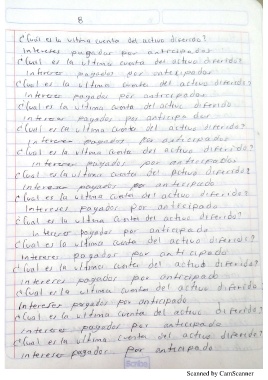 8
¿Cual es la ultima cuenta del activo diferido?
Intereses pagador por anticipados
¿Cual es la ultima cuenta del activo diferido?
Intereses pagados por anticipador
¿Cual es la ultima cuenta del activo diferido
interesar pagador por anticipado
¿Cual es la ultima cuenta del activo diferido
interesar pagados por anticipador
¿Cual es la ultima cuenta del activo diferido?
Intereses pagados por anticipado
¿Cual es la ultima cuenta del activo diferido?
intereses pagados por anticipado
¿Cual es la ultima cuenta del activo diferido?
intereses pagador por anticipado
¿Cual es la ultima cuenta del activo diferido?
Intereses pagador por anticipado
¿Cual es la ultima cuenta del activo diferido?
Intereses pagador por anticipado
¿Cual es la ultima cuenta del activo diferido?
Intereses pagador por anticipado
¿Cual es la ultima cuenta del activo diferido?
intereses pagados por anticipado
¿Cual es la ultima cuenta del activo diferido?
Intereses pagados por anticipado
¿Cual es la ultima cuenta del activo diferido?
intereses pagados por anticipado
¿Cual es la ultima cuenta del activo diferido?
intereses pagador por anticipado
Scribe
Scanned by CamScanner